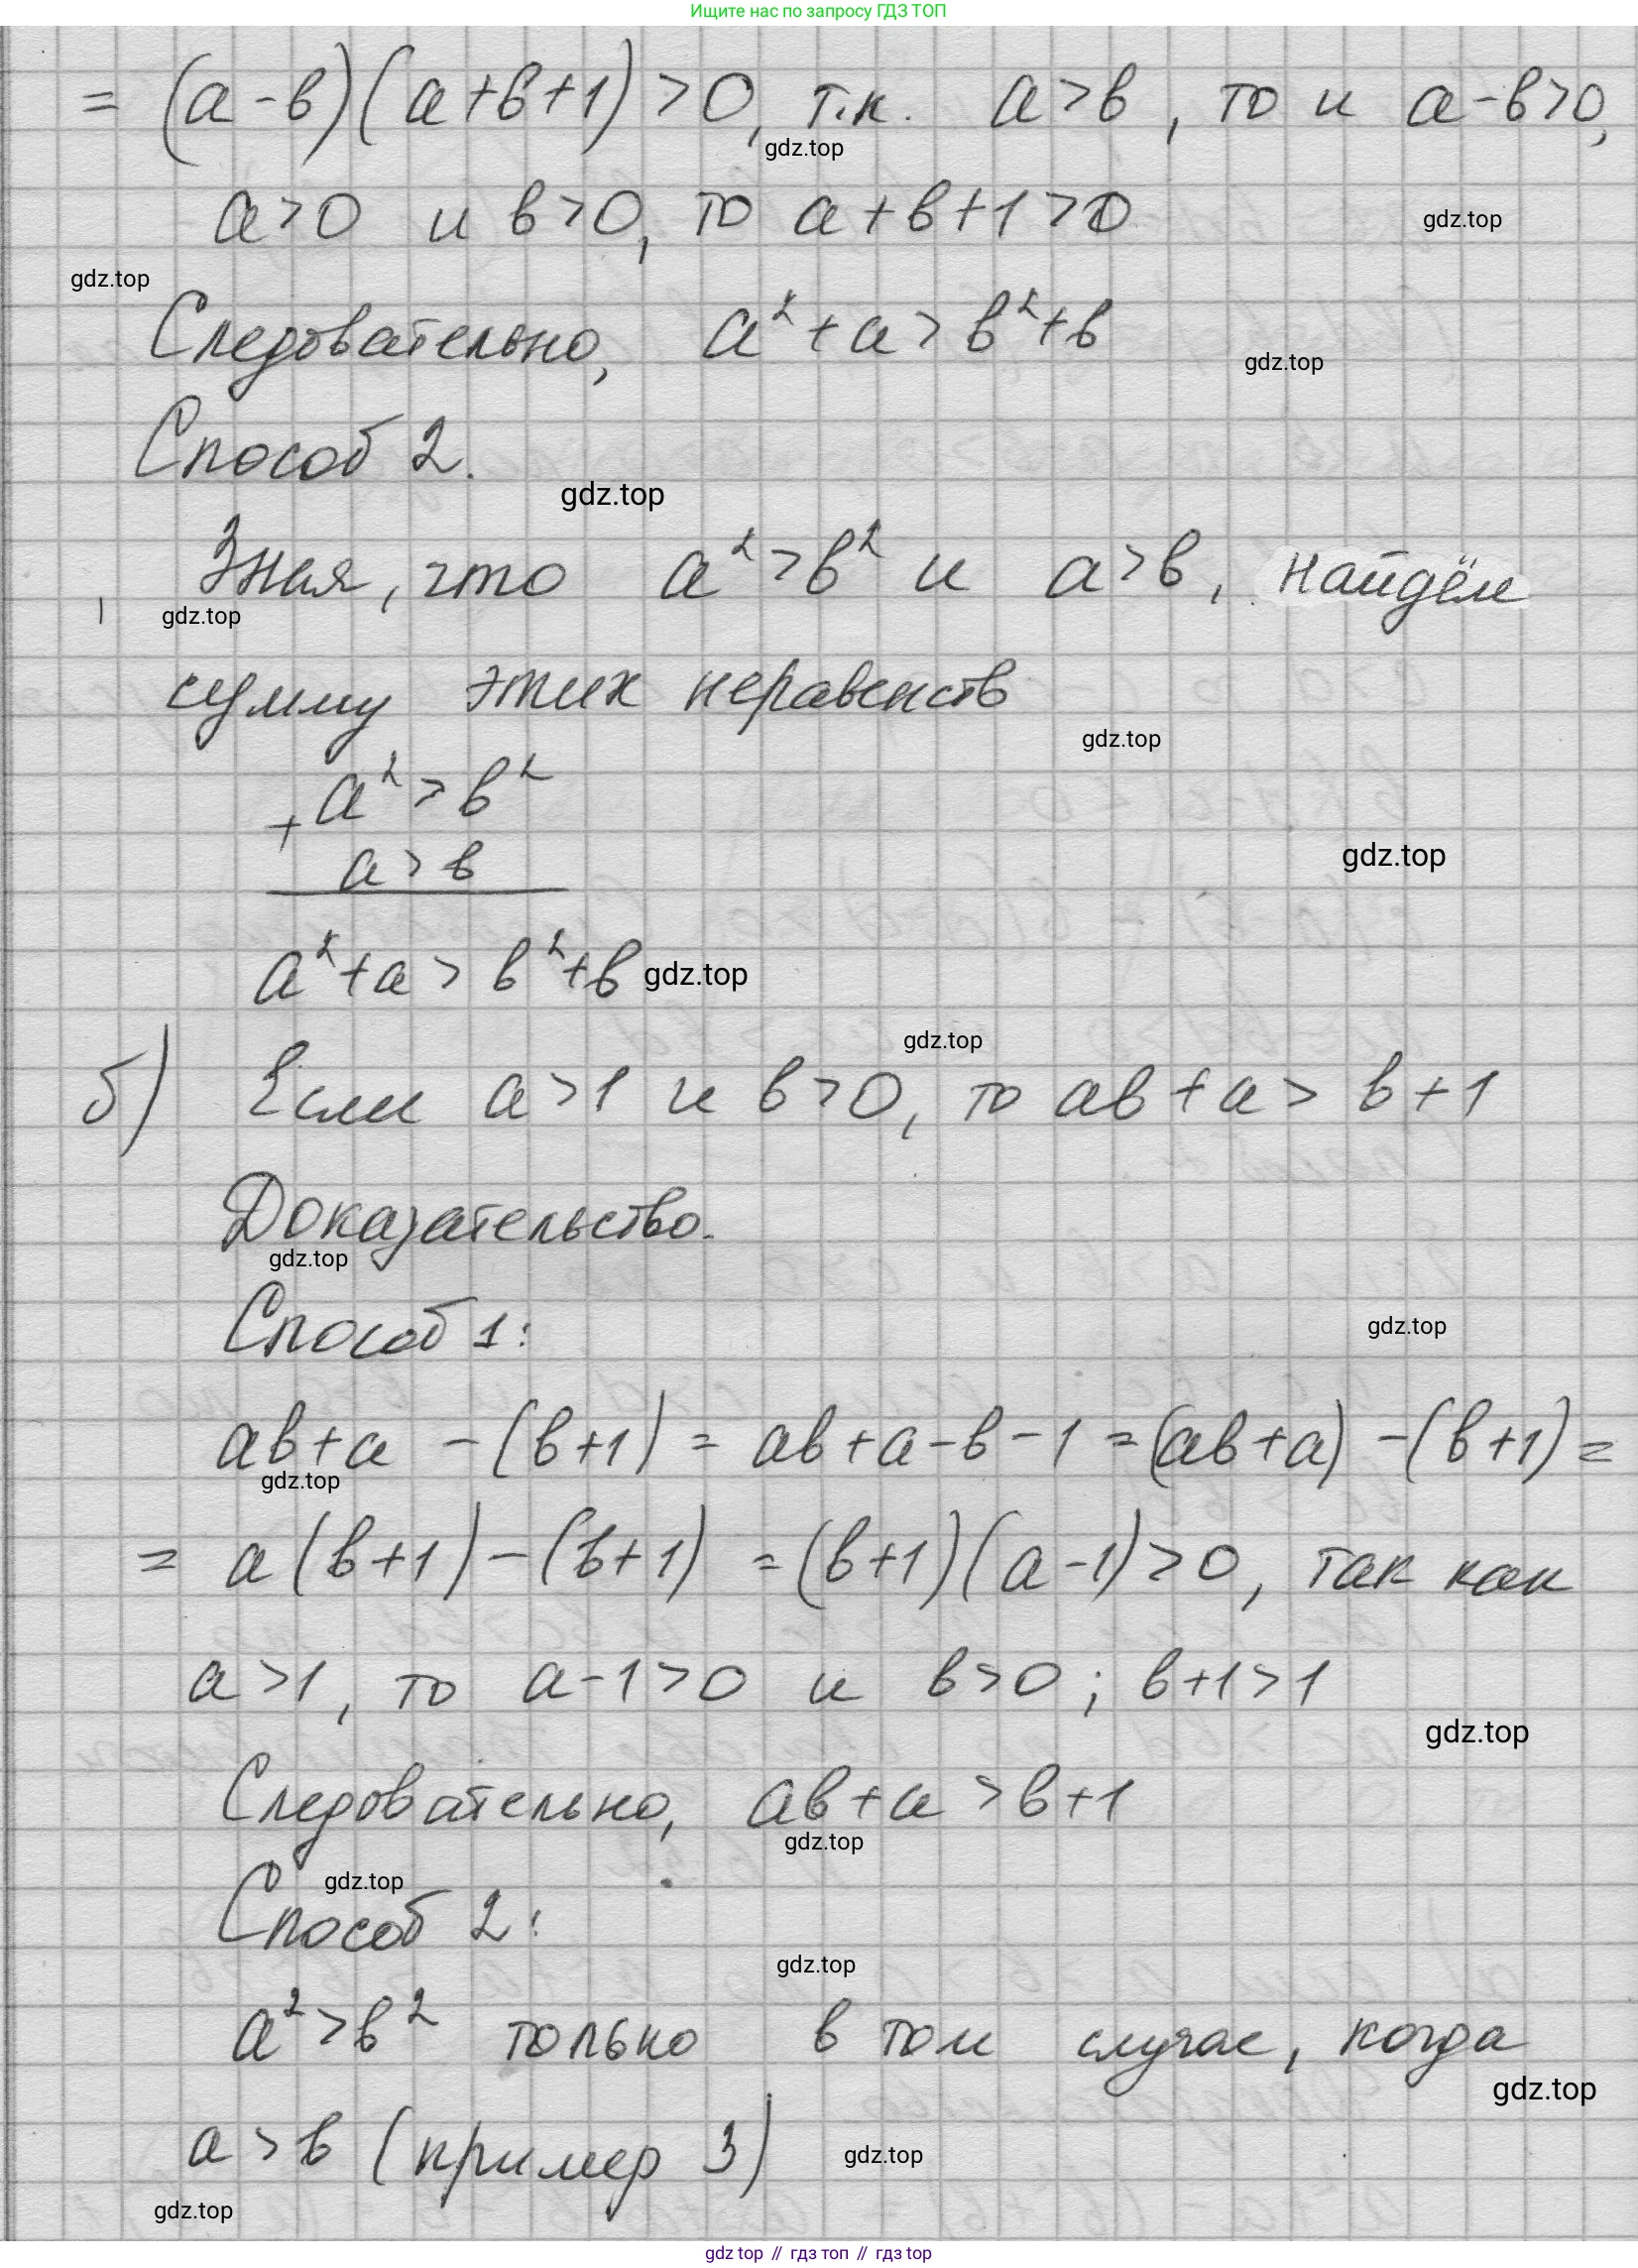 Ищите нас по запросу ГДЗ ТОП
= (a-в)(a+в+1)>0, т.к. a>в, то и a-в>0,
gdz.top
a>0 и в>0, то a+в+1>0
gdz.top
gdz.top
Следовательно, a²+a>в²+в
gdz.top
Способ 2.
gdz.top
Зная, что a²>в² и a>в, найдём
gdz.top
сумму этих неравенств
gdz.top
+ a²>в²
a>в
gdz.top
a²+a>в²+в
gdz.top
gdz.top
б) Если a>1 и в>0, то aв+a>в+1
Доказательство.
gdz.top
Способ 1:
gdz.top
aв+a-(в+1)=aв+a-в-1=(aв+a)-(в+1)=
gdz.top
=a(в+1)-(в+1)=(в+1)(a-1)>0, так как
a>1, то a-1>0 и в>0; в+1>1
gdz.top
Следовательно, aв+a>в+1
gdz.top
gdz.top
Способ 2:
gdz.top
a²>в² только в том случае, когда
gdz.top
a>в (пример 3)
gdz.top
gdz.top
gdz top // гдз топ // гдз top